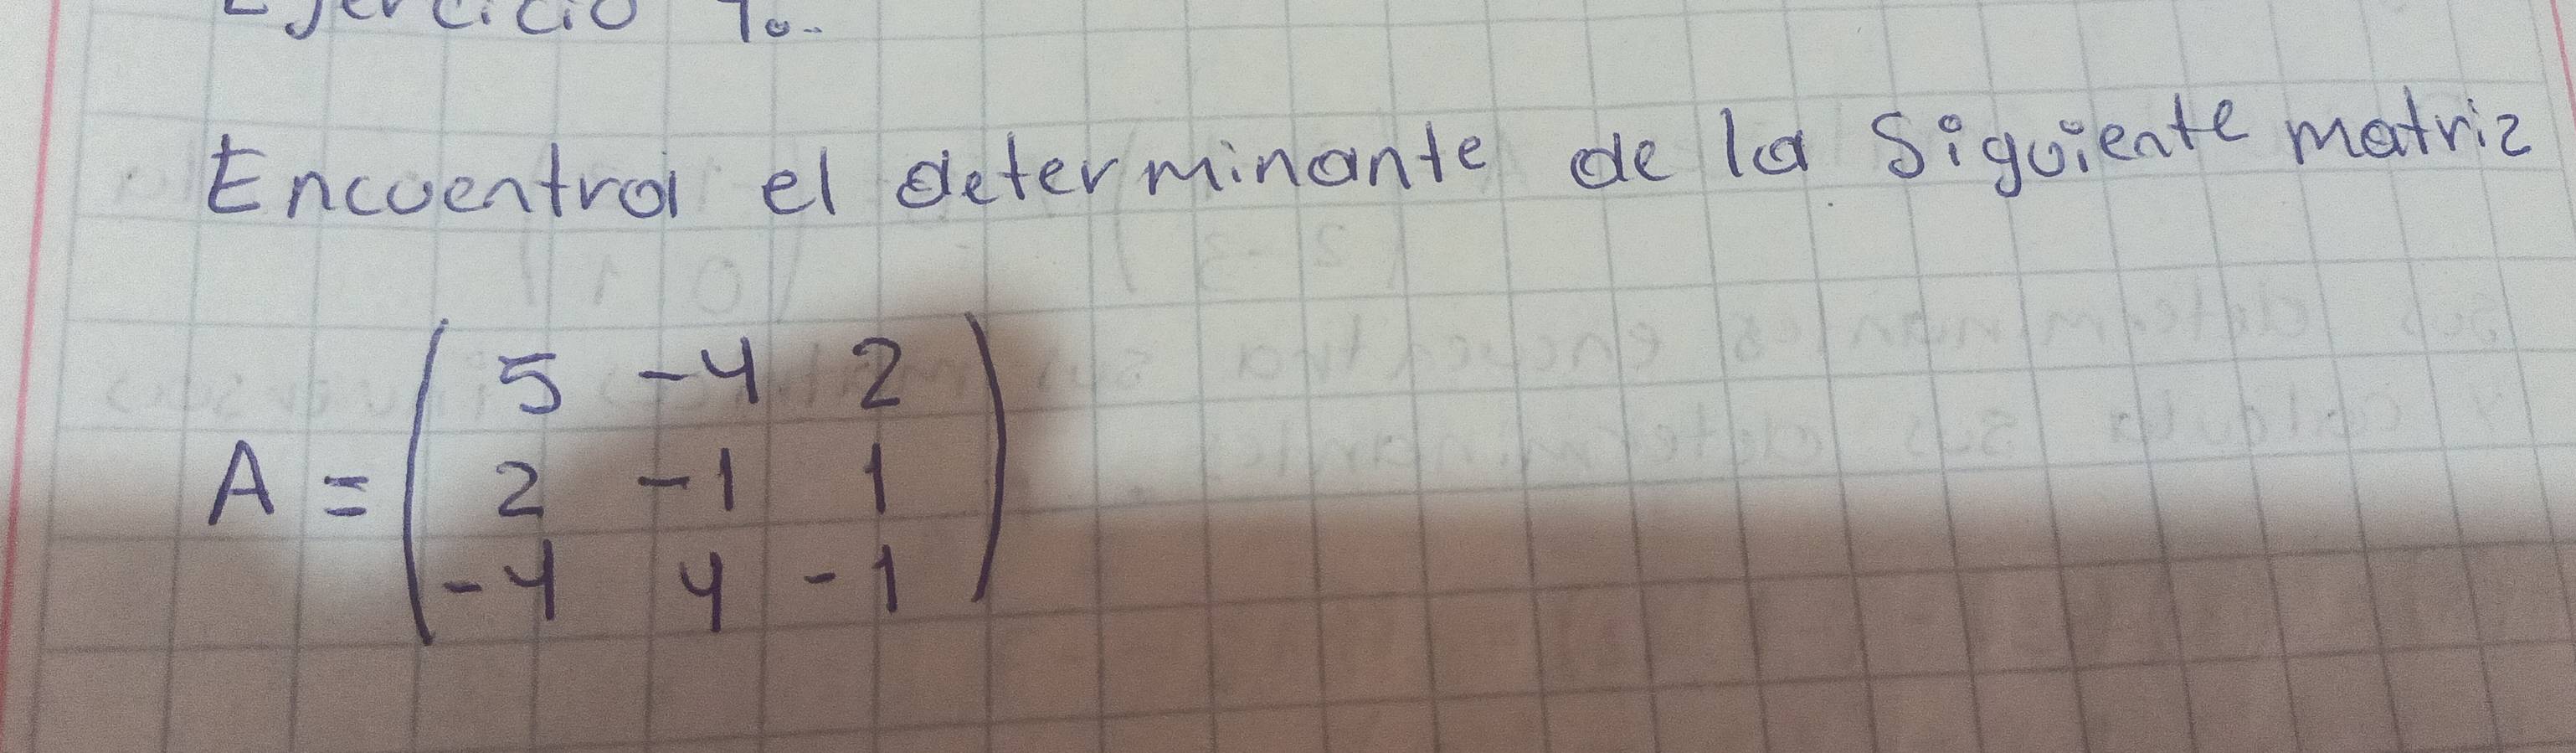 Ejercicio 10..
Encuentra el determinante de la siguiente matriz
A = ( 5 -4 2
2 -1 1
-4 4 -1 )